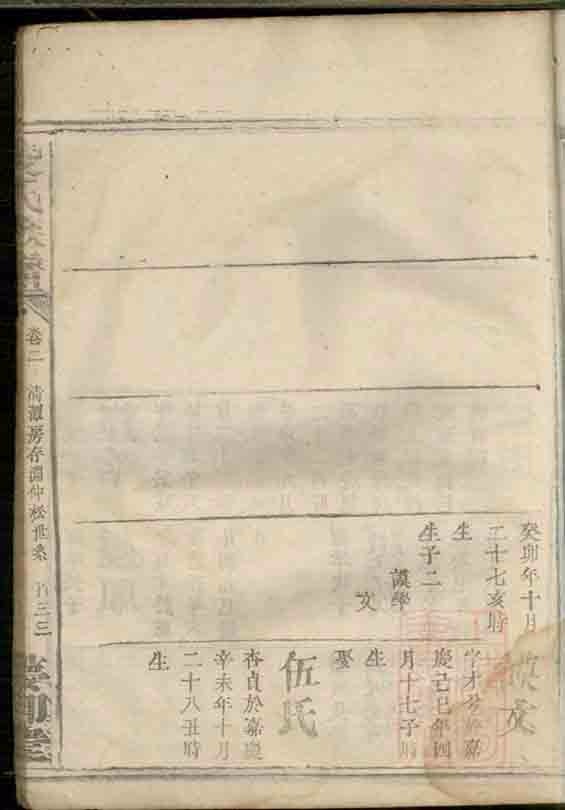 癸卯年十月
二十七亥時
生
生子二
謨學
文
文
慶己巳年四
月十七子時
生
娶
伍氏
杏貞於嘉慶
辛未年十月
二十八丑時
生
氏族譜
卷二
清潭房存淵仲松世系